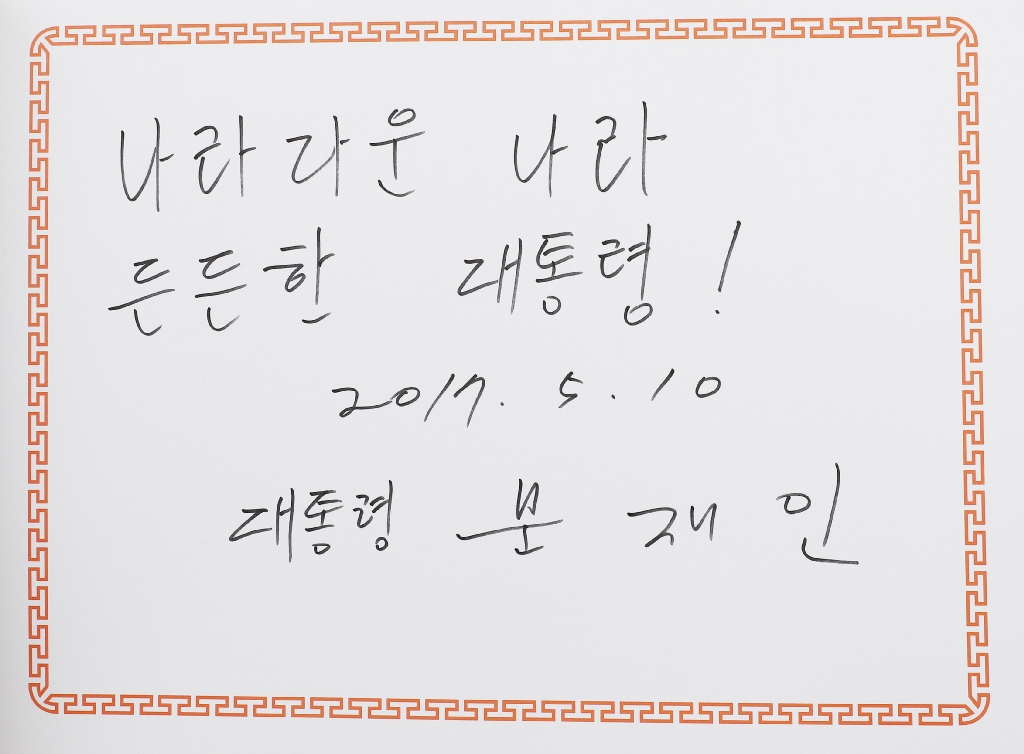 나라다운 나라
든든한 대통령!
2017. 5. 10
대통령 문재인